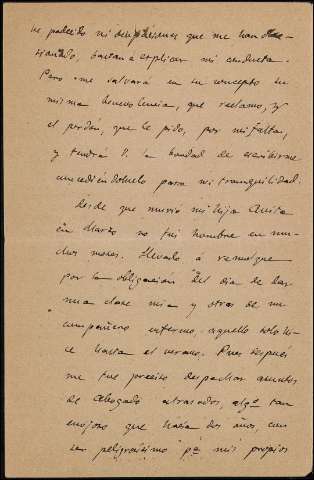 he padecido ni desgracias que me han
sionado, bastan a explicar mi conducta.
Pero me salvará en su concepto su
misma benevolencia, que reclamo, y
el perdón, que le pido, por mi falta,
y tendrá V. la bondad de escribirme
concediéndomelo para mi tranquilidad.
Desde que murió mi hija Anita
en Marzo no fui hombre en mu-
chos meses. Llevado á remolque
por la obligación del día de dar
una clase mia y otras de un
compañero enfermo, aquello solo hi-
ce hasta el verano. Pues después
me fue preciso despachar asuntos
de Abogado atrasados, algº tan
enojoso que hacia dos años, con
ser peligrosísimo pª mis propios